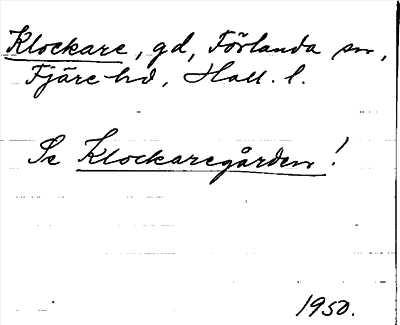 Klockare, gd, Förlanda sn,
Fjäre hd, Hall. l.
Se Klockaregården!
1950.